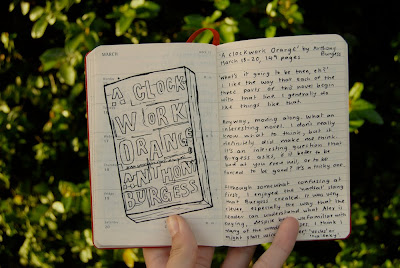 MARCH
A CLOCK
WORK
ORANGE
ANTHONY
BURGESS
'A clockwork Orange' by Anthony
Burgess
March 18-20, 149 pages
What's it going to be then, eh?'
I like the way that each of the
three parts of this novel begin
with that line. I generally do
like things like that.
Anyway, moving along. What an
interesting novel. I don't really
know what to think, but it
definitely did make me think.
It's an interesting question that
Burgess asks, is it better to be
bad at your own will, or to be
forced to be good? It's a tricky one.
Although somewhat confusing at
first, I enjoyed the 'nadsat' slang
that Burgess created. It was very
clever, especially the way that the
reader can understand what Alex is
saying, despite being unfamiliar with
many of the words he uses. I think I
might start using